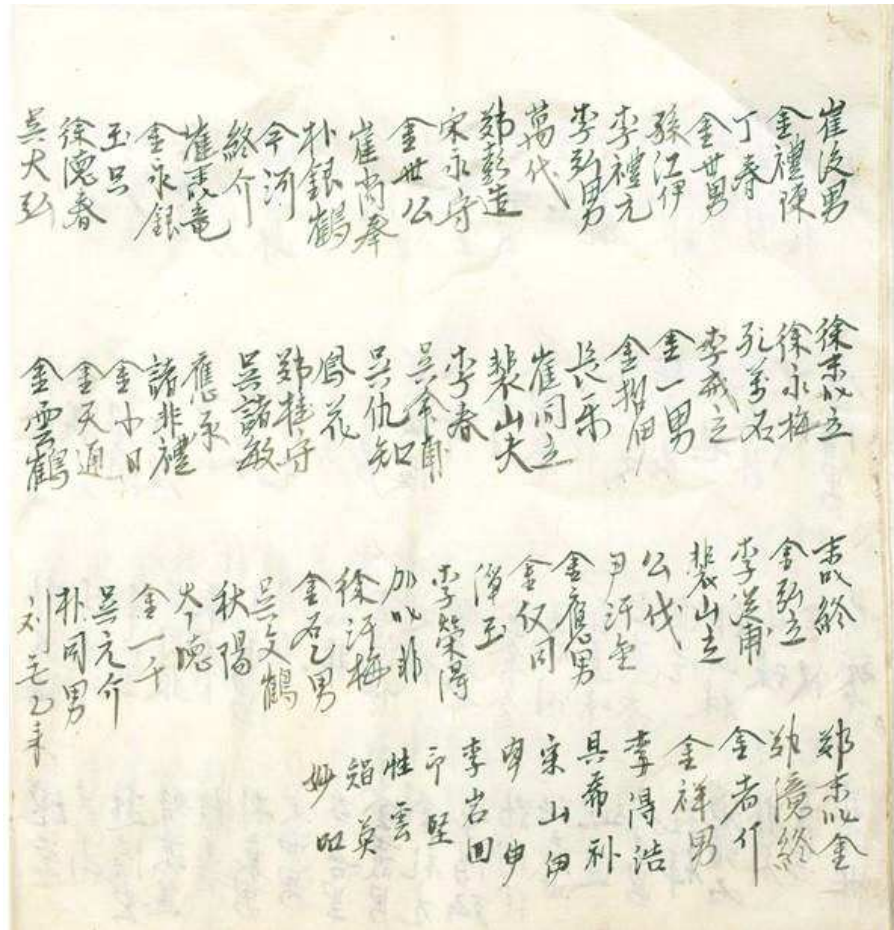 崔後男
金禮陳
丁春
金世男
孫江伊
李禮元
李弘男
萬代
鄭彭造
宋永守
金世公
崔尚奉
朴銀鶴
今河
終介
崔唜竜
金永銀
玉只
徐德春
吳大弘
徐唜立
徐永梅
孔萬石
李戒立
金一男
金哲伊
長乐
崔同立
裴山夫
李春
吳希甫
吳仇知
鳳花
鄭桂守
吳諸敏
應承
諸非禮
金小日
金天通
金雲鶴
唜終
金弘立
李送甫
裴山立
公代
尹汗金
金應男
金仅同
淂玉
李榮淂
加叱非
徐汗梅
金石乙男
吳文鶴
秋陽
岑德
金一千
吳元介
朴同男
刘乭乙未
鄭唜金
鄭億終
金者斤
金祥男
李得浩
具希朴
宋山伊
申伊
李岩回
印堅
性雲
智英
妙昭